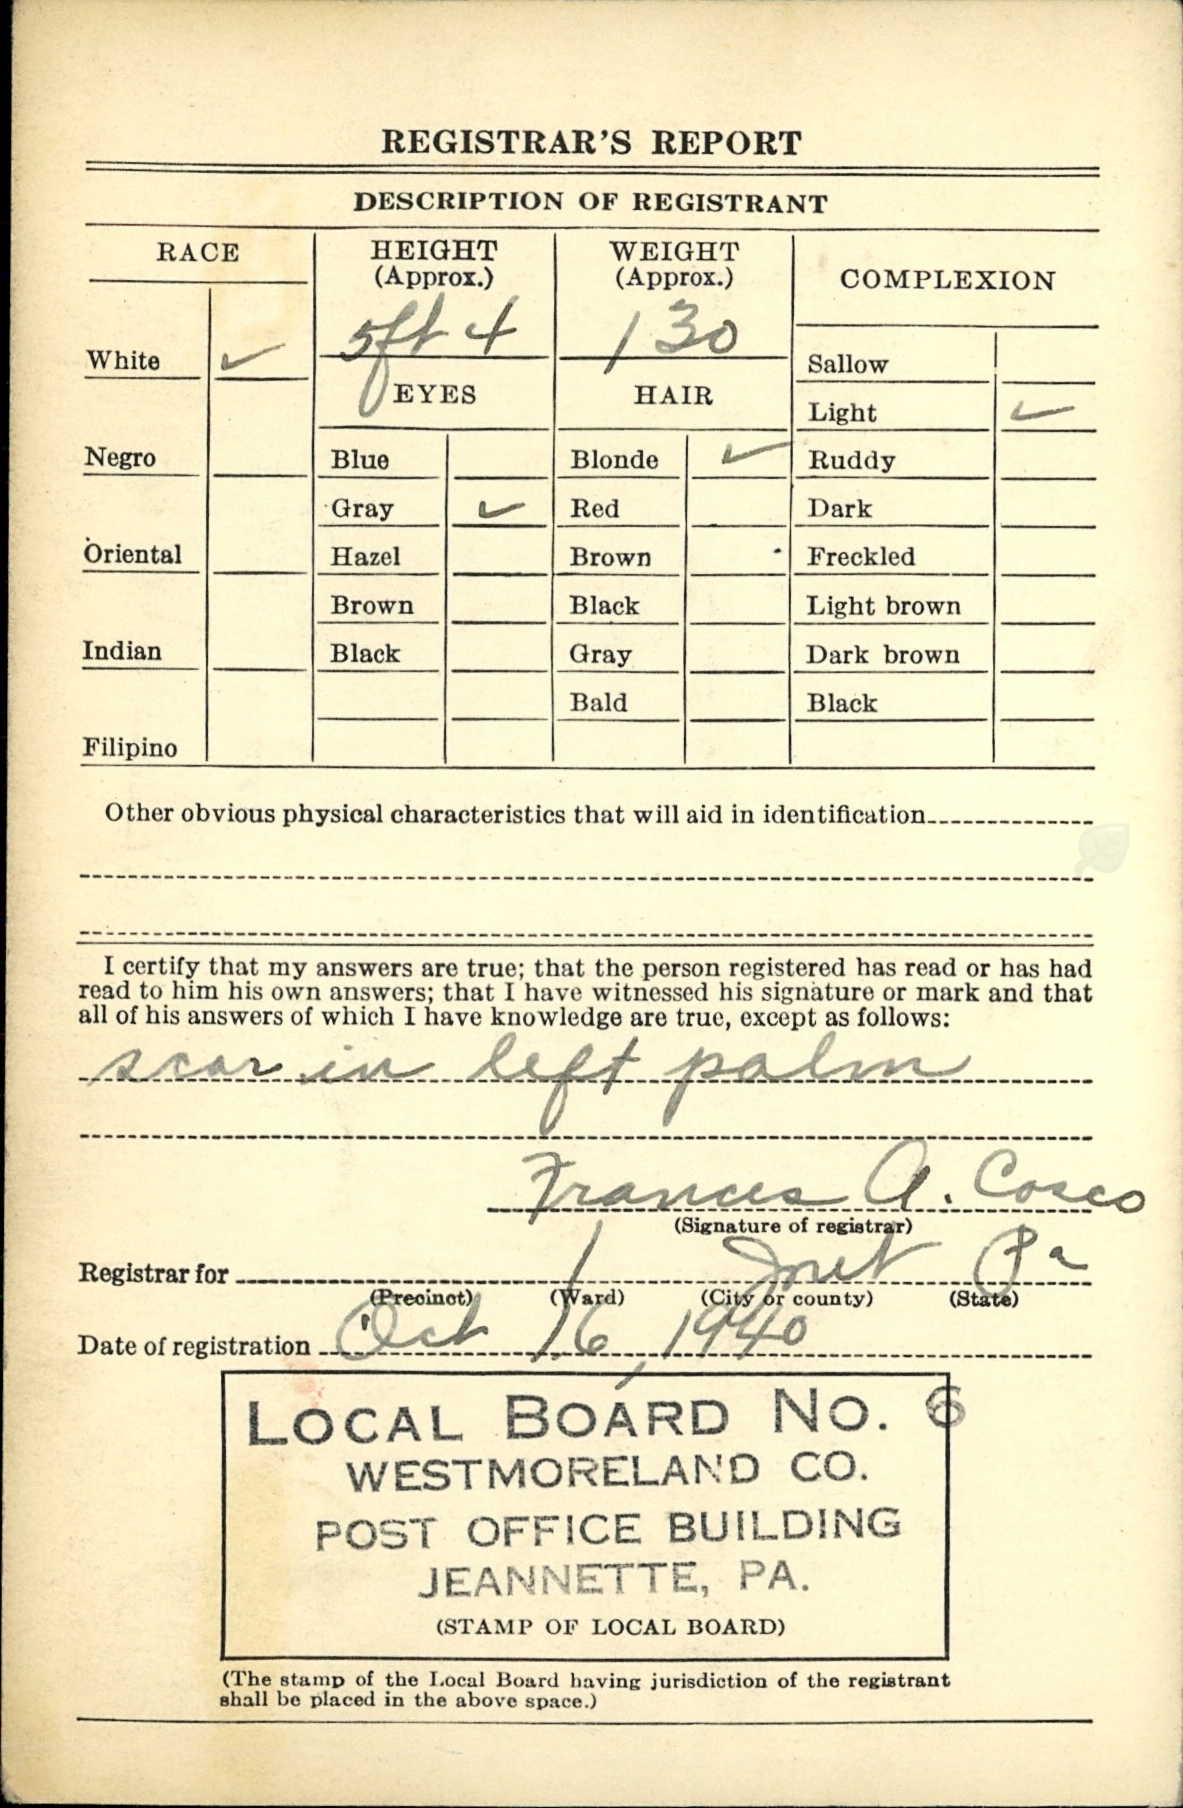 REGISTRAR'S REPORT
DESCRIPTION OF REGISTRANT
RACE
HEIGHT
(Approx.)
WEIGHT
(Approx.)
COMPLEXION
5ft 4
130
White ✓
EYES
HAIR
Sallow
Light ✓
Negro
Blue
Blonde ✓
Ruddy
Gray ✓
Red
Dark
Oriental
Hazel
Brown
Freckled
Brown
Black
Light brown
Indian
Black
Gray
Dark brown
Bald
Black
Filipino
Other obvious physical characteristics that will aid in identification
I certify that my answers are true; that the person registered has read or has had
read to him his own answers; that I have witnessed his signature or mark and that
all of his answers of which I have knowledge are true, except as follows:
scar in left palm
Frances A. Cosco
(Signature of registrar)
Registrar for 1 Jnet Pa
(Precinct) (Ward) (City or county) (State)
Date of registration Oct 16, 1940
LOCAL BOARD NO. 6
WESTMORELAND CO.
POST OFFICE BUILDING
JEANNETTE, PA.
(STAMP OF LOCAL BOARD)
(The stamp of the Local Board having jurisdiction of the registrant
shall be placed in the above space.)